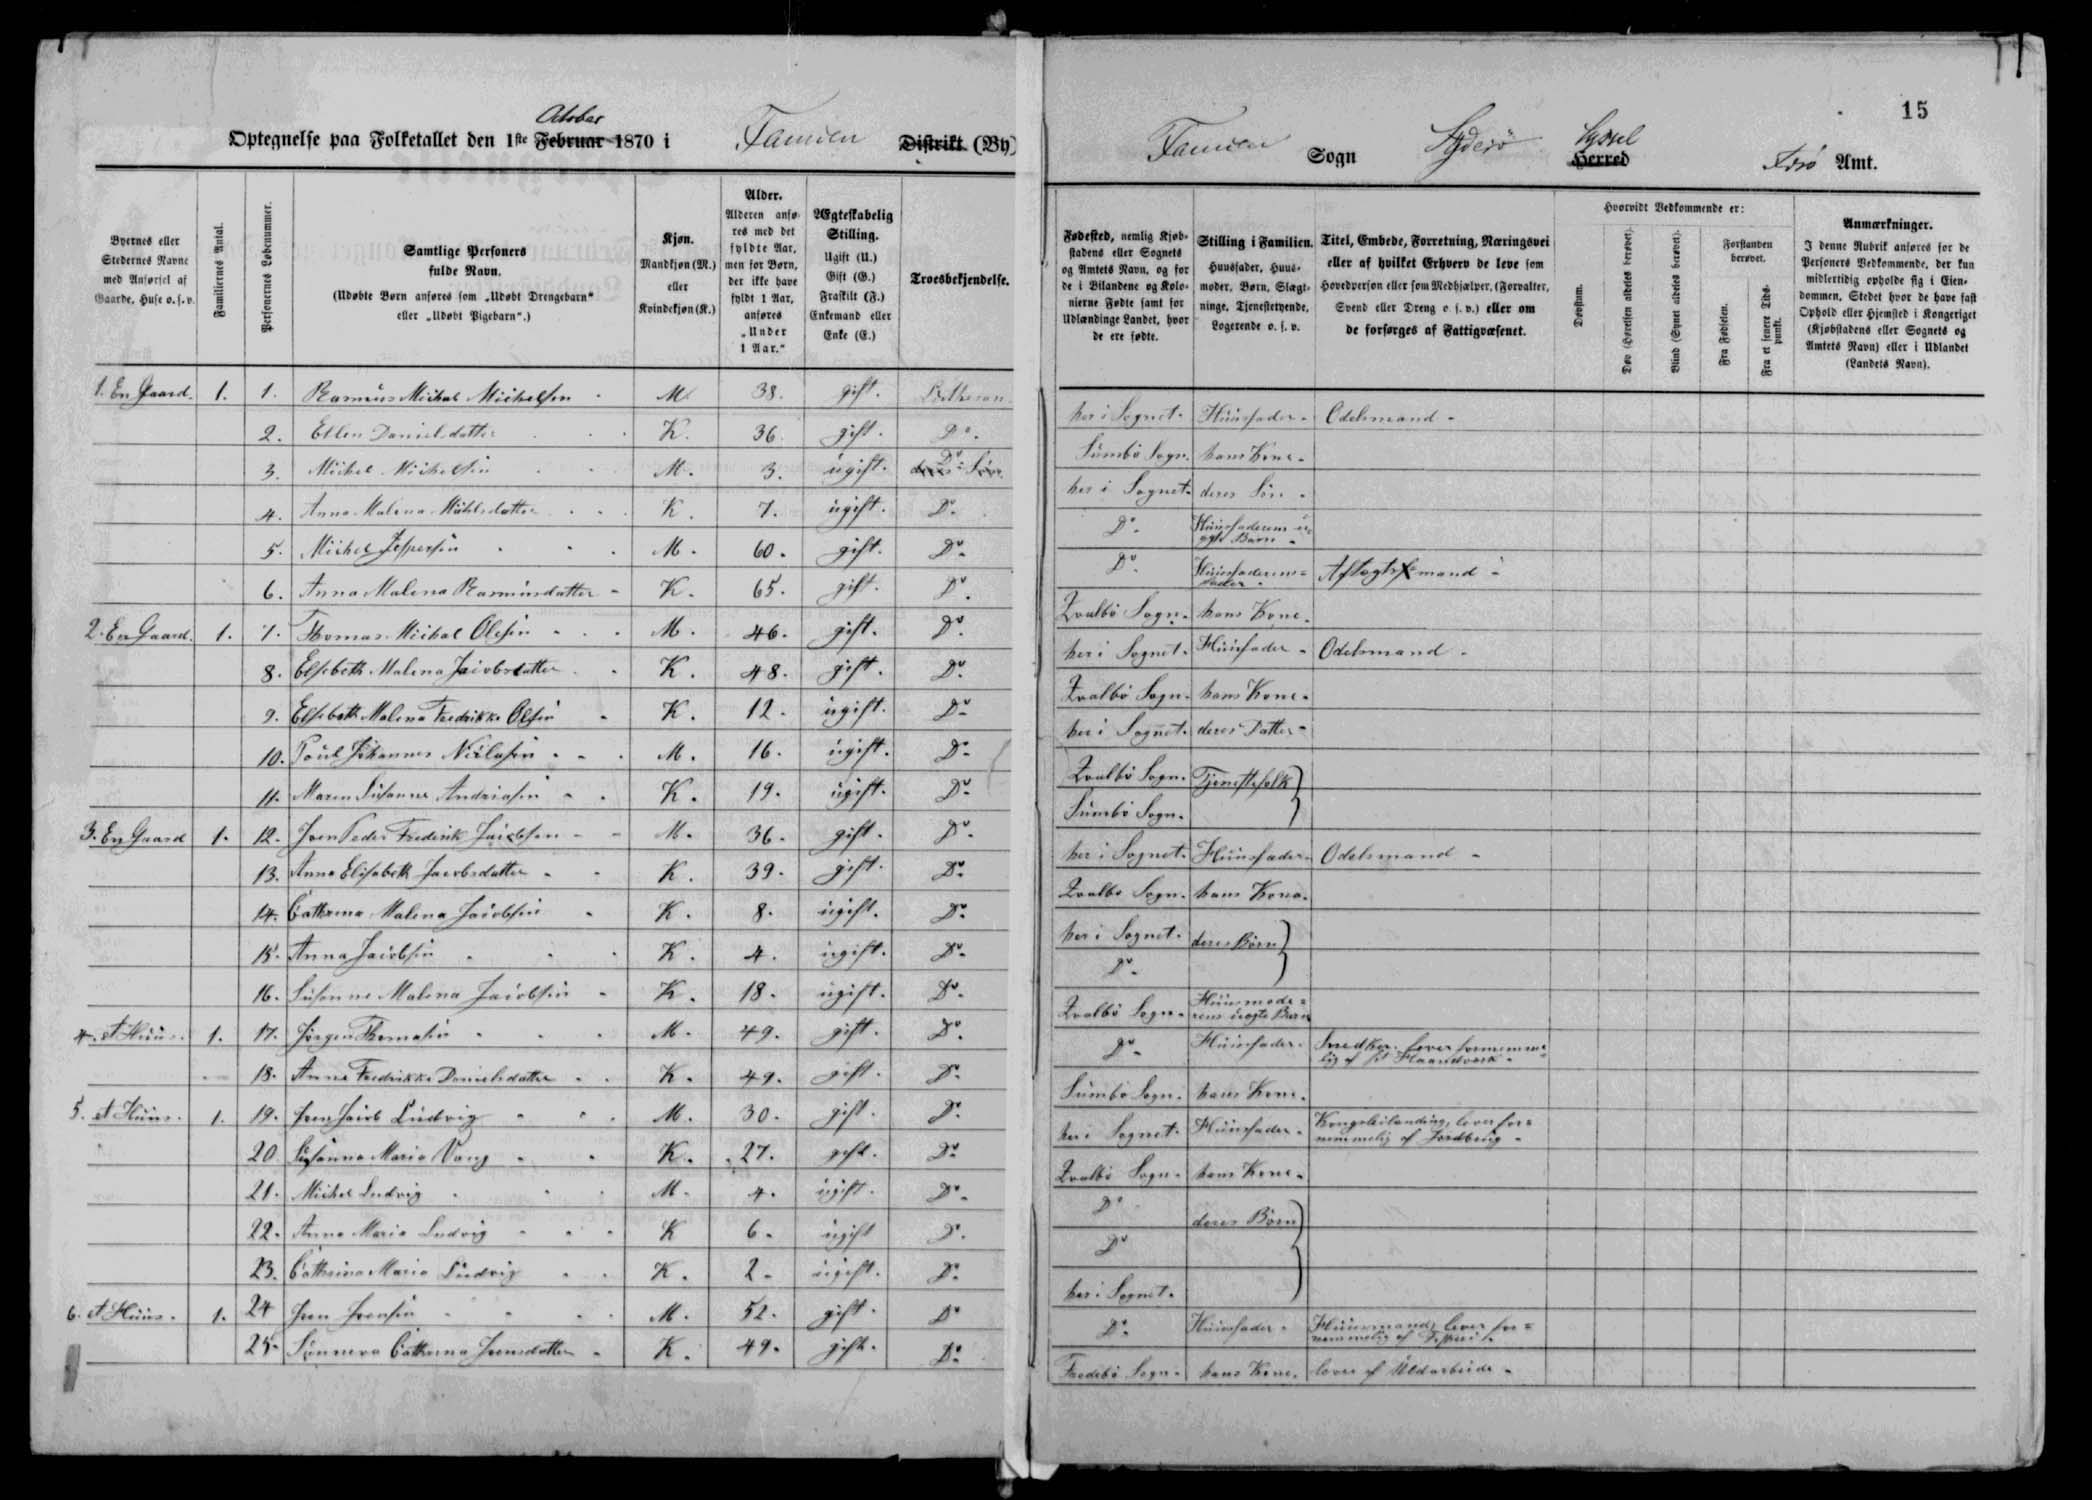 15
Optegnelse paa Folketallet den 1ste Februar October 1870 i Famien Distrikt (By)
Famien Sogn Syderö Herred Syssel Færö Amt.
Byernes eller Stedernes Navne med Anførsel af Gaarde, Huse o. s. v.
Familiernes Antal.
Personernes Løbenummer.
Samtlige Personers fulde Navn. (Udøbte Børn anføres som „Udøbt Drengebarn“ eller „Udøbt Pigebarn“.)
Kjøn. Mandkjøn (M.) eller Kvindekjøn (K.)
Alder. Alderen anføres med det fyldte Aar, men for Børn, der ikke have fyldt 1 Aar, anføres „Under 1 Aar.“
Ægteskabelig Stilling. Ugift (U.) Gift (G.) Fraskilt (F.) Enkemand eller Enke (E.)
Troesbekjendelse.
Fødested, nemlig Kjøbstadens eller Sognets og Amtets Navn, og for de i Bilandene og Kolonierne Fødte samt for Udlændinge Landet, hvor de ere fødte.
Stilling i Familien. Huusfader, Huusmoder, Børn, Slægtninge, Tjenestetyende, Logerende o. s. v.
Titel, Embede, Forretning, Næringsvei eller af hvilket Erhverv de leve som Hovedperson eller som Medhjælper, (Forvalter, Svend eller Dreng o. s. v.) eller om de forsørges af Fattigvæsenet.
Hvorvidt Vedkommende er:
Døvstum.
Døv (Hørelsen aldeles berøvet).
Blind (Synet aldeles berøvet).
Forstanden berøvet.
Fra Fødselen.
Fra et senere Tidspunkt.
Anmærkninger. I denne Rubrik anføres for de Personers Vedkommende, der kun midlertidig opholde sig i Eiendommen, Stedet hvor de have fast Ophold eller Hjemsted i Kongeriget (Kjøbstadens eller Sognets og Amtets Navn) eller i Udlandet (Landets Navn).
1. En Gaard. 1. 1. Rasmus Michal Michelsen M. 38. gift. Lutheran her i Sognet. Huusfader. Odelsmand
2. Ellen Danielsdatter K. 36. gift. Do. Sumbö Sogn. hans Kone.
3. Michel Michelsen M. 3. ugift. Do. her i Sognet. deres Sön
4. Anna Malena Michelsdatter K. 7. ugift. Do. Do. Huusfaderens uægte Barn
5. Michel Jespersen M. 60. gift. Do. Do. Huusfaderens Fader Aflægtsmand
6. Anna Malena Rasmusdatter K. 65. gift. Do. Qvalbö Sogn. hans Kone.
2. En Gaard. 1. 7. Thomas Michal Olesen M. 46. gift. Do. her i Sognet. Huusfader Odelsmand
8. Elsebeth Malena Jacobsdatter K. 48. gift. Do. Qvalbö Sogn. hans Kone.
9. Elsebeth Malena Fredrikke Olsen K. 12. ugift. Do. her i Sognet. deres Datter
10. Poul Johannes Niclasen M. 16. ugift. Do. Qvalbö Sogn. Tjenestefolk
11. Maren Susanne Andreasen K. 19. ugift. Do. Sumbö Sogn.
3. En Gaard 1. 12. Joen Peder Frederik Jacobsen M. 36. gift. Do. her i Sognet. Huusfader. Odelsmand
13. Anna Elisabeth Jacobsdatter K. 39. gift. Do. Qvalbö Sogn. hans Kone.
14. Cathrina Malena Jacobsen K. 8. ugift. Do. her i Sognet. deres Börn
15. Anna Jacobsen K. 4. ugift. Do. Do.
16. Susanne Malena Jacobsen K. 18. ugift. Do. Qvalbö Sogn. Huusmoderens uægte Barn
4. et Huus. 1. 17. Jörgen Thomasen M. 49. gift. Do. Do. Huusfader. Snedker, lever fornemmelig af sit Haandværk
18. Anna Fredrikke Danielsdatter K. 49. gift. Do. Sumbö Sogn. hans Kone.
5. et Huus. 1. 19. Joen Jacob Ludvig M. 30. gift. Do. her i Sognet. Huusfader. Kongsleilænding, lever fornemmelig af Jordbrug
20. Susanna Maria Vang K. 27. gift. Do. Qvalbö Sogn. hans Kone.
21. Michel Ludvig M. 4. ugift. Do. Do. deres Börn
22. Anna Maria Ludvig K 6. ugift Do. Do
23. Cathrina Maria Ludvig K. 2. ugift. Do. her i Sognet.
6. et Huus. 1. 24 Joen Joensen M. 52. gift. Do Do. Huusfader. Huusmand, lever fornemmelig af Fiskeri
25. Sunneva Cathrina Joensdatter K. 49. gift. Do. Frodebö Sogn. hans Kone. lever af Uldarbeide